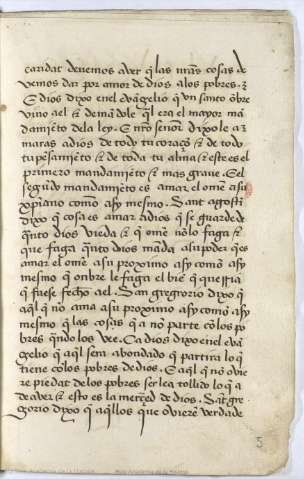 caridat deuemos auer q̃ las nr̃as cosas de
uemos dar por amor de dios a los pobres. ⁊
E dios dixo en el euãgelio q̃ un santo õbre
vino a el ⁊ demãdole q̃l era el mayor mã
damjẽto de la ley. E nr̃o señor dixole a
maras a dios de todo tu coraçõ ⁊ de todo
tu pẽsamjẽto ⁊ de toda tu alma ⁊ este es el
primero mandamjẽto ⁊ mas graue. E el
segũdo mandamjẽto es amar el ome a su
xp̃iano como asy mesmo. Sant agostĩ
dixo q̃ cosa es amar a dios q̃ se guarde de
q̃nto dios vieda ⁊ q̃ ome nõ lo faga ⁊
que faga q̃nto dios mãda a su poder q̃ es
amar el ome a su proximo asy como asy
mesmo q̃ onbre le faga el biẽ q̃ querria
q̃ fuese fecho a el. San gregorio dixo q̃
aq̃l q̃ no ama a su proximo asy como asy
mesmo q̃ las cosas q̃ a nõ parte cõ los po
bres q̃ndo los vee. Ca dios dixo en el euã
gelio q̃ aq̃l sera abondado q̃ partira lo q̃
tiene cõ los pobres de dios. E aq̃l q̃ nõ ovie
re piedat de los pobres ser le a tollido lo q̃ a
de aver ⁊ esto es la merçed de dios. Sãt gre
gorio dixo q̃ aq̃llos que ovierẽ verdade
5